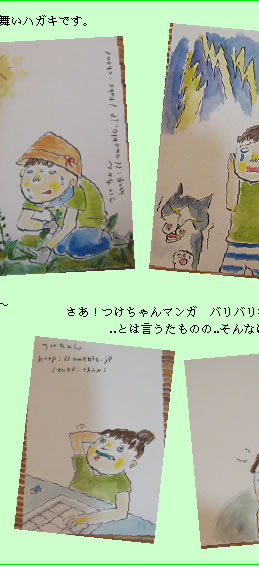 舞いハガキです。
つけちゃん
http://ameblo.jp/tuke-chan/
さあ！つけちゃんマンガ　バリバリ
..とは言うたものの..そんな
つけちゃん
http://ameblo.jp
/tuke-chan/